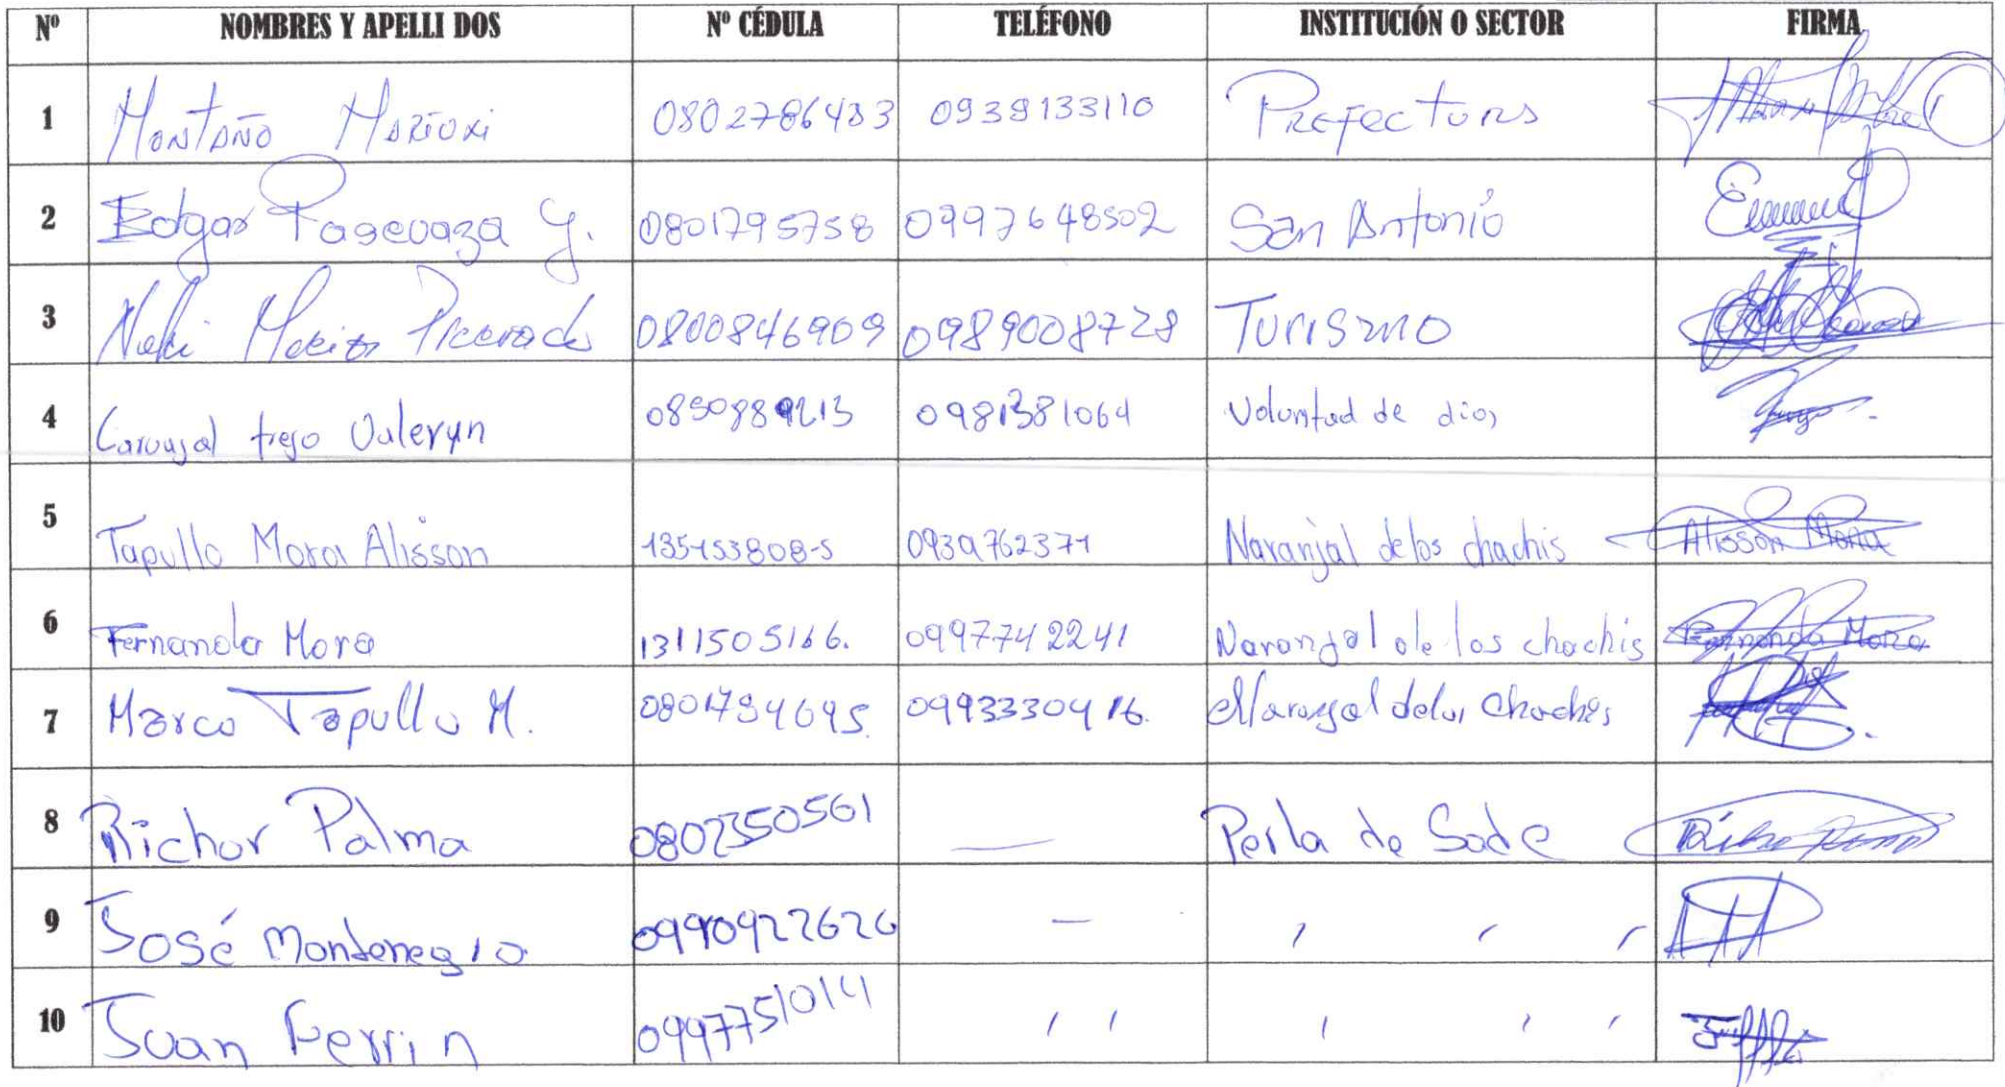 Nº NOMBRES Y APELLI DOS Nº CÉDULA TELÉFONO INSTITUCIÓN O SECTOR FIRMA
1 Montaño Mariuxi 0802786483 0939133110 Prefectura
2 Edgar Y. 0801795758 0997648502 San Antonio
3 0800846909 0989008728 Turismo
4 Carvajal trejo Valeryn 0850889213 0981381064 Voluntad de dios
5 Tapullo Mora Alisson 135153808-5 0939762371 Naranjal de los chachis Alisson Mora
6 Fernanda Mora 1311505166. 0997742241 Naranjal de los chachis Fernanda Mora
7 Marco Tapullo M. 0801794695. 0993330416. Naranjal de los Chachis
8 Richar Palma 0802350561 — Perla de Sade
9 José Montenegro 0990927626 — , , ,
10 Juan Ferrin 0997751014 , , , , ,